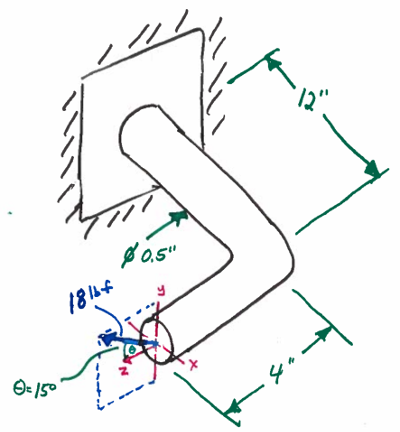 12"
Ø 0.5"
18 lbf
y
θ
x
z
θ=15°
4"